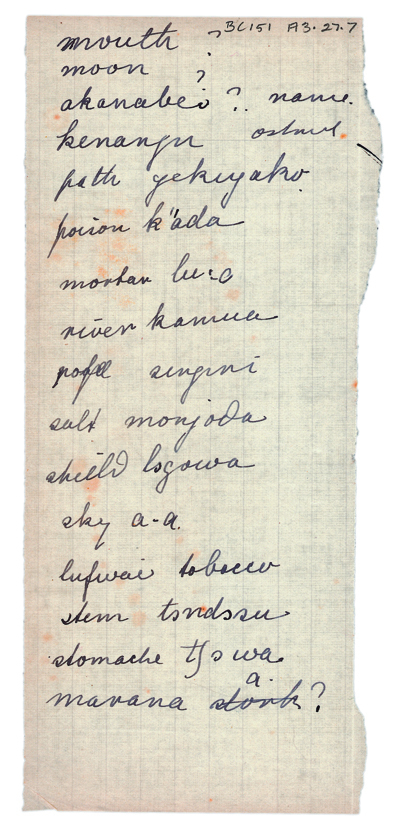 BC151 A3.27.7
mouth ?
moon ?
akanabeo ? name
kenangu ostrich
path gekuyako
poison k"ada
mortar lu:o
river kamua
rope singini
salt monjoda
shield logowa
sky a-a
lufwai tobacco
stem
stomache wa
a
marana stork?